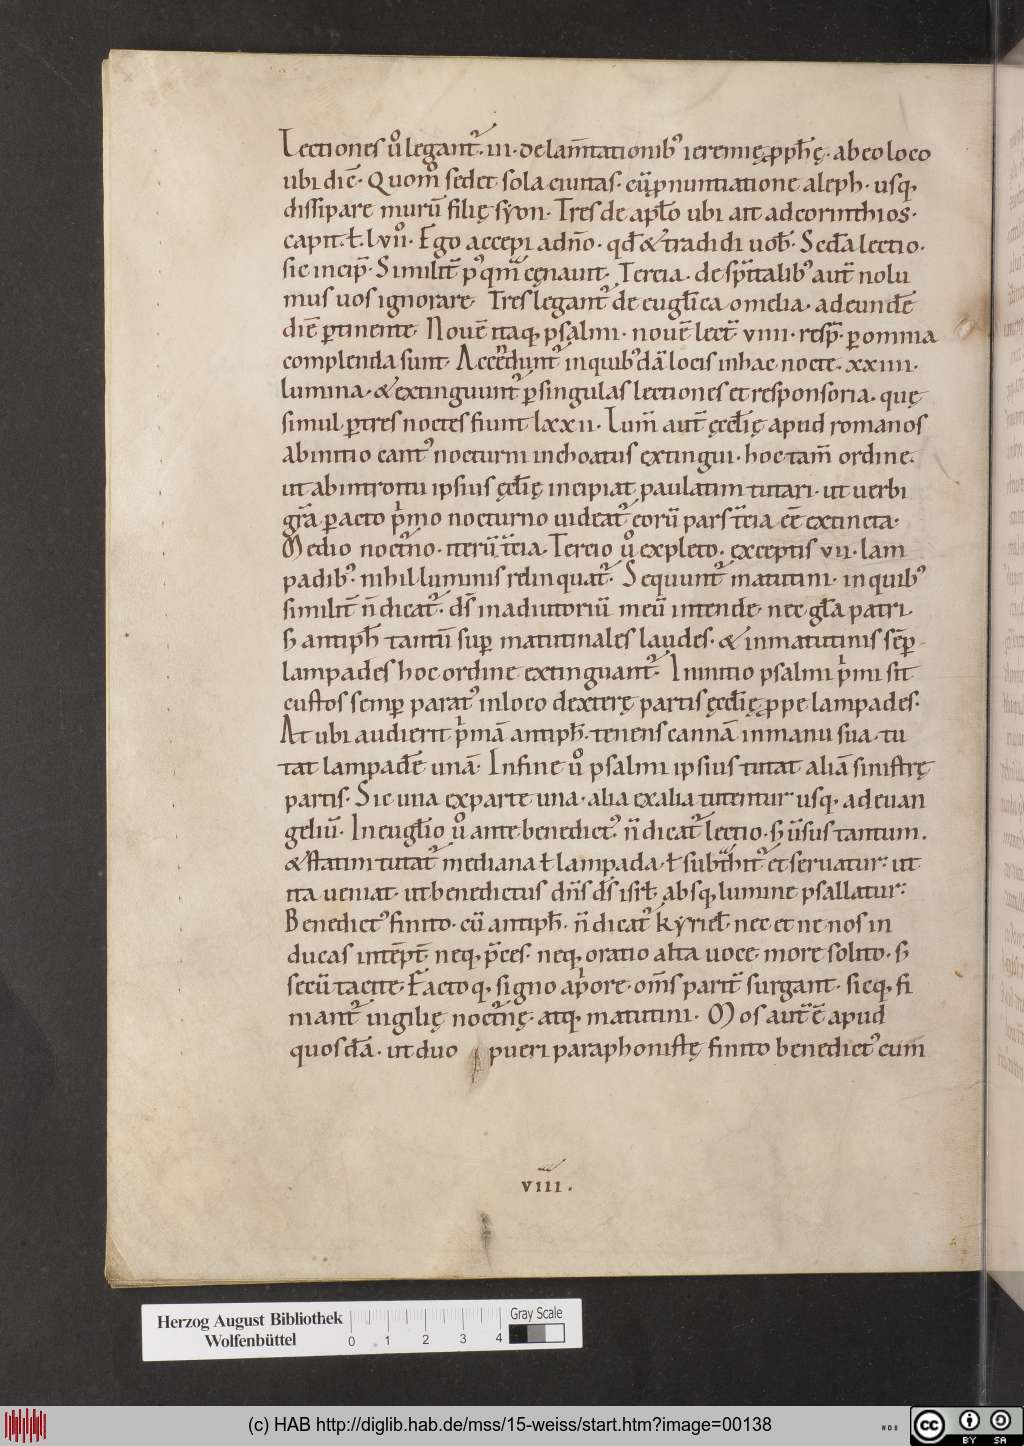 Lectiones ů legant᷑. iii. de lam̅tationib᷒ ieremię ꝓph̅ę. ab eo loco
ubi dic̅. Quom̊ sedet sola ciuitas. cū p̱nuntiatione aleph. usq,
dissipare murū filię syon. Tres de apłо ubi ait ad corinthios.
capit. ł. lvii. Ego accepi a dn̅o. qd̅ & tradidi uob̅. Secd̅a lectio.
sic incip̅. Similit̅ p᷒qm̅ cęnauit. Tercia. de sp̅italib᷒ aut̅ nolu
mus uos ignorare. Tres legant᷑ de eugl̅ica omelia. ad eunde̅
die̅ ꝑtinente. Noue̅ itaq, psalmi. noue̅ lect̅. viiii. resp̅. ꝑ omnia
complenda sunt. Accendunt᷑ in quib᷒dā locis in hac nocte. xxiiii.
lumina. & extinguunt᷑ ꝑ singulas lectiones et responsoria. quę
simul ꝑ tres noctes fiunt lxxii. Lum̅ aut̅ ęccl̅ię apud romanos
ab initio cant᷒ nocturni inchoatus extingui. hoc tam̅ ordine.
ut ab introitu ipsius ęccl̅ię incipiat paulatim tutari. ut uerbi
gr̅a ꝑacto p̍mo nocturno uideat᷑ eorū pars t̅cia ee̅ extincta.
Medio noct̅no. iterū t̅cia. Tercio ů expleto. exceptis vii. lam
padib᷒. nihil luminis relinquat᷑. Sequunt᷑ matutini. in quib᷒
similit̅ n̅ dicat᷑. ds̅ in adiutoriū meū intende. nec gl̅a patri.
s̅ antiph̅ tantū suꝑ matutinales laudes. & in matutinis sēꝑ.
lampades hoc ordine extinguant᷑. In initio psalmi p̍mi sit
custos semꝑ parat᷒ in loco dexterę partis ęccl̅ię ꝓpe lampades.
At ubi audierit p̍mā antiph̅. tenens cannā in manu sua. tu
tat lampade̅ unā. In fine ů psalmi ipsius tutat aliā sinistrę
partis. Sic una ex parte una. alia ex alia tutentur usq, ad euan
geliū. In eugl̅io ů ante benedict᷒. n̅ dicat᷑ lectio. s̅ ūsus tantum.
& statim tutat᷑ mediana ł lampada. ł subt̅hit᷑ et seruatur: ut
ita ueniat. ut benedictus dn̅s ds̅ isrł. absq, lumine psallatur:
Benedict᷒ finito. cū antiph̅. n̅ dicat᷑ kyriel̅. nec et ne nos in
ducas inte̅pt̅. neq, p̅ces. neq, oratio alta uoce. more solito. s̅
secū tacite. Facto q, signo a p̍ore. om̅s parit̅ surgant. sicq, fi
niant᷑ uigilię noct̅nę. atq, matutini. Mos aut̅ e̅ apud
quosdā. ut duo pueri paraphonistę finito benedict᷒ cum
viii.
Herzog August Bibliothek
Wolfenbüttel
0 1 2 3 4
Gray Scale
(c) HAB http://diglib.hab.de/mss/15-weiss/start.htm?image=00138
cc BY SA